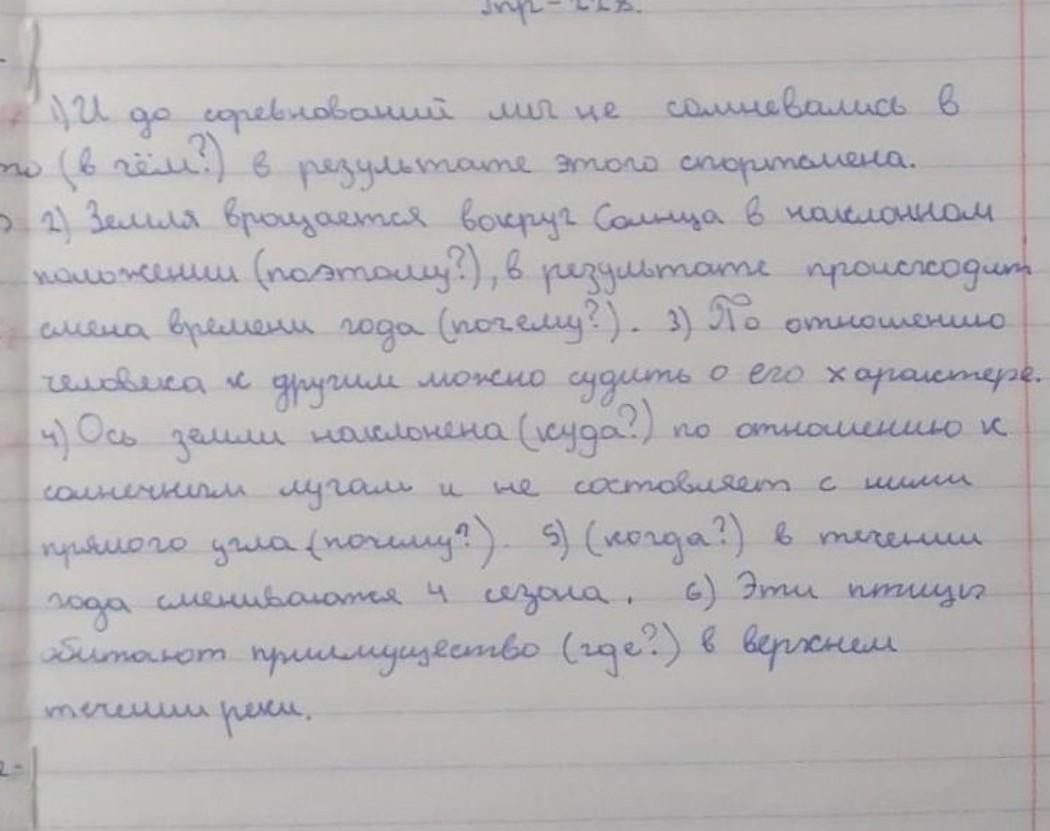 Упр-228.
1) И до соревнований мы не сомневались в
(в чём?) в результате этого спортсмена.
2) Земля вращается вокруг Солнца в наклонном
положении (поэтому?), в результате происходит
смена времени года (почему?). 3) По отношению
человека к другим можно судить о его характере.
4) Ось земли наклонена (куда?) по отношению к
солнечным лугам и не составляет с ними
прямого угла (почему?). 5) (когда?) в течении
года смениваются 4 сезона. 6) Эти птицы
обитают приимущество (где?) в верхнем
течении реки.